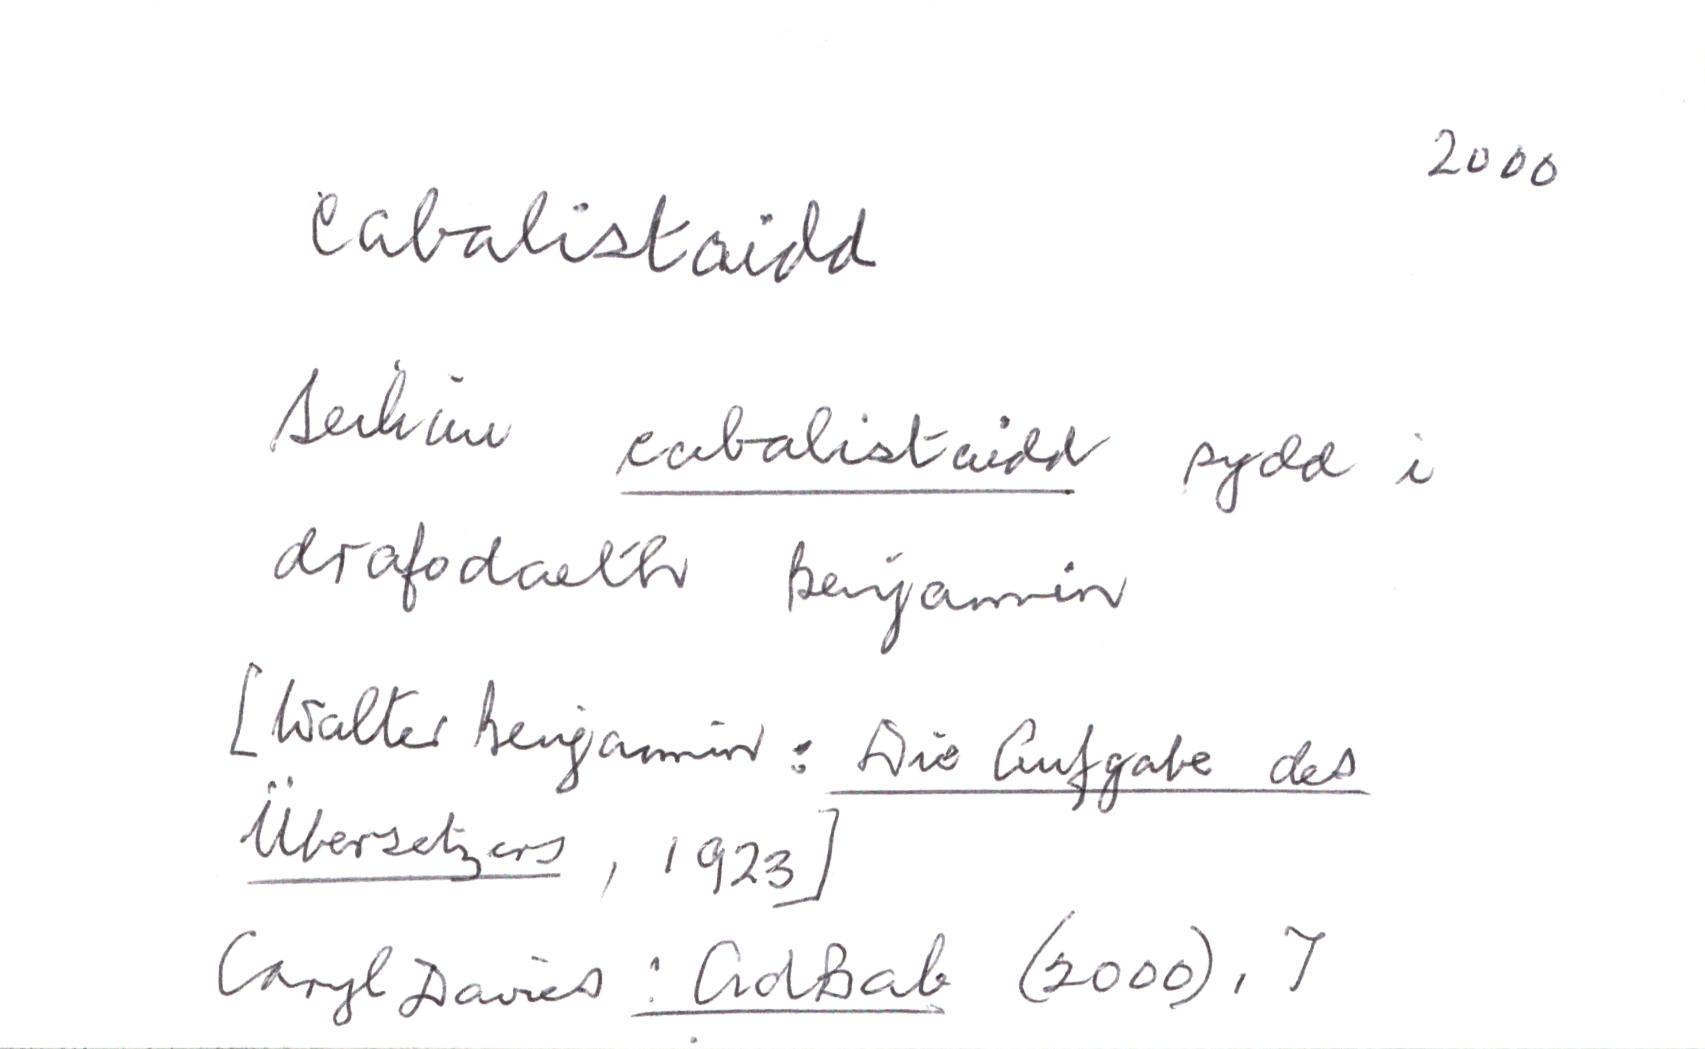 2000
cabalistaidd
Seiliau cabalistaidd sydd i
drafodaeth Benjamin
[Walter Benjamin: Die Aufgabe des
Übersetzers, 1923]
Caryl Davies: AdBab (2000), 7